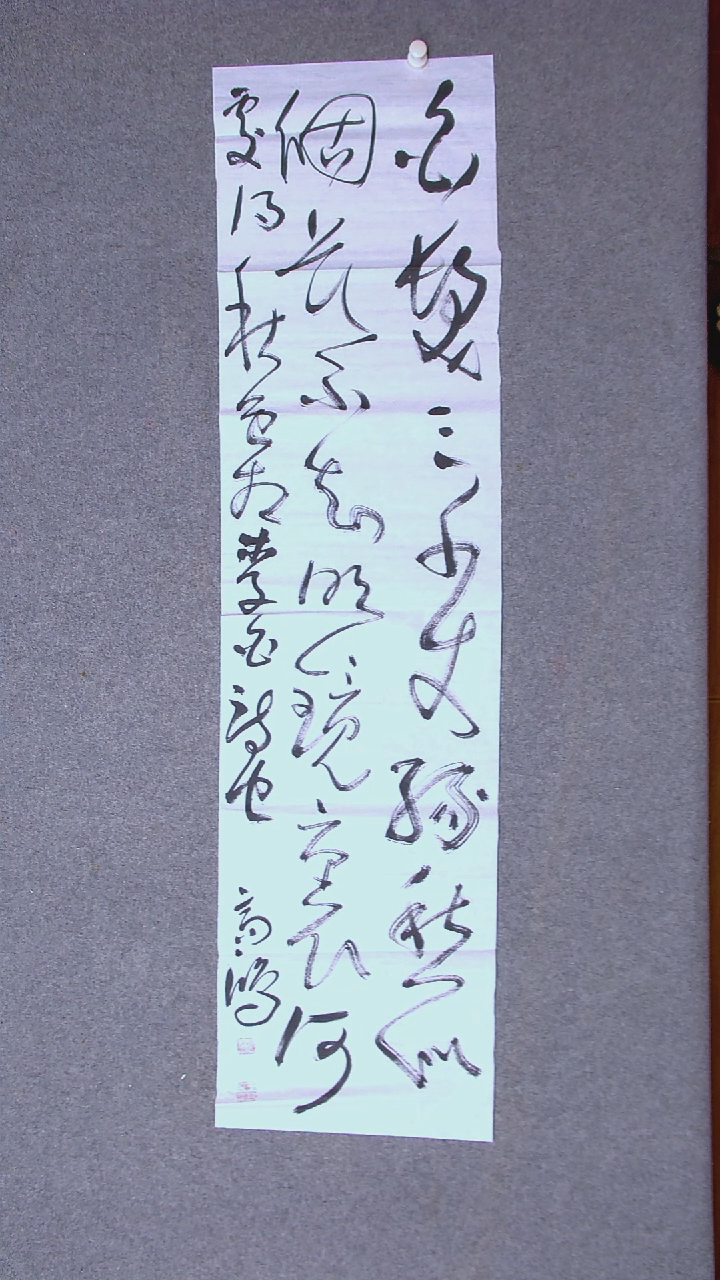 白髮三千丈緣愁似
個長不知明鏡裏何
處得秋霜李白詩也
高鴻